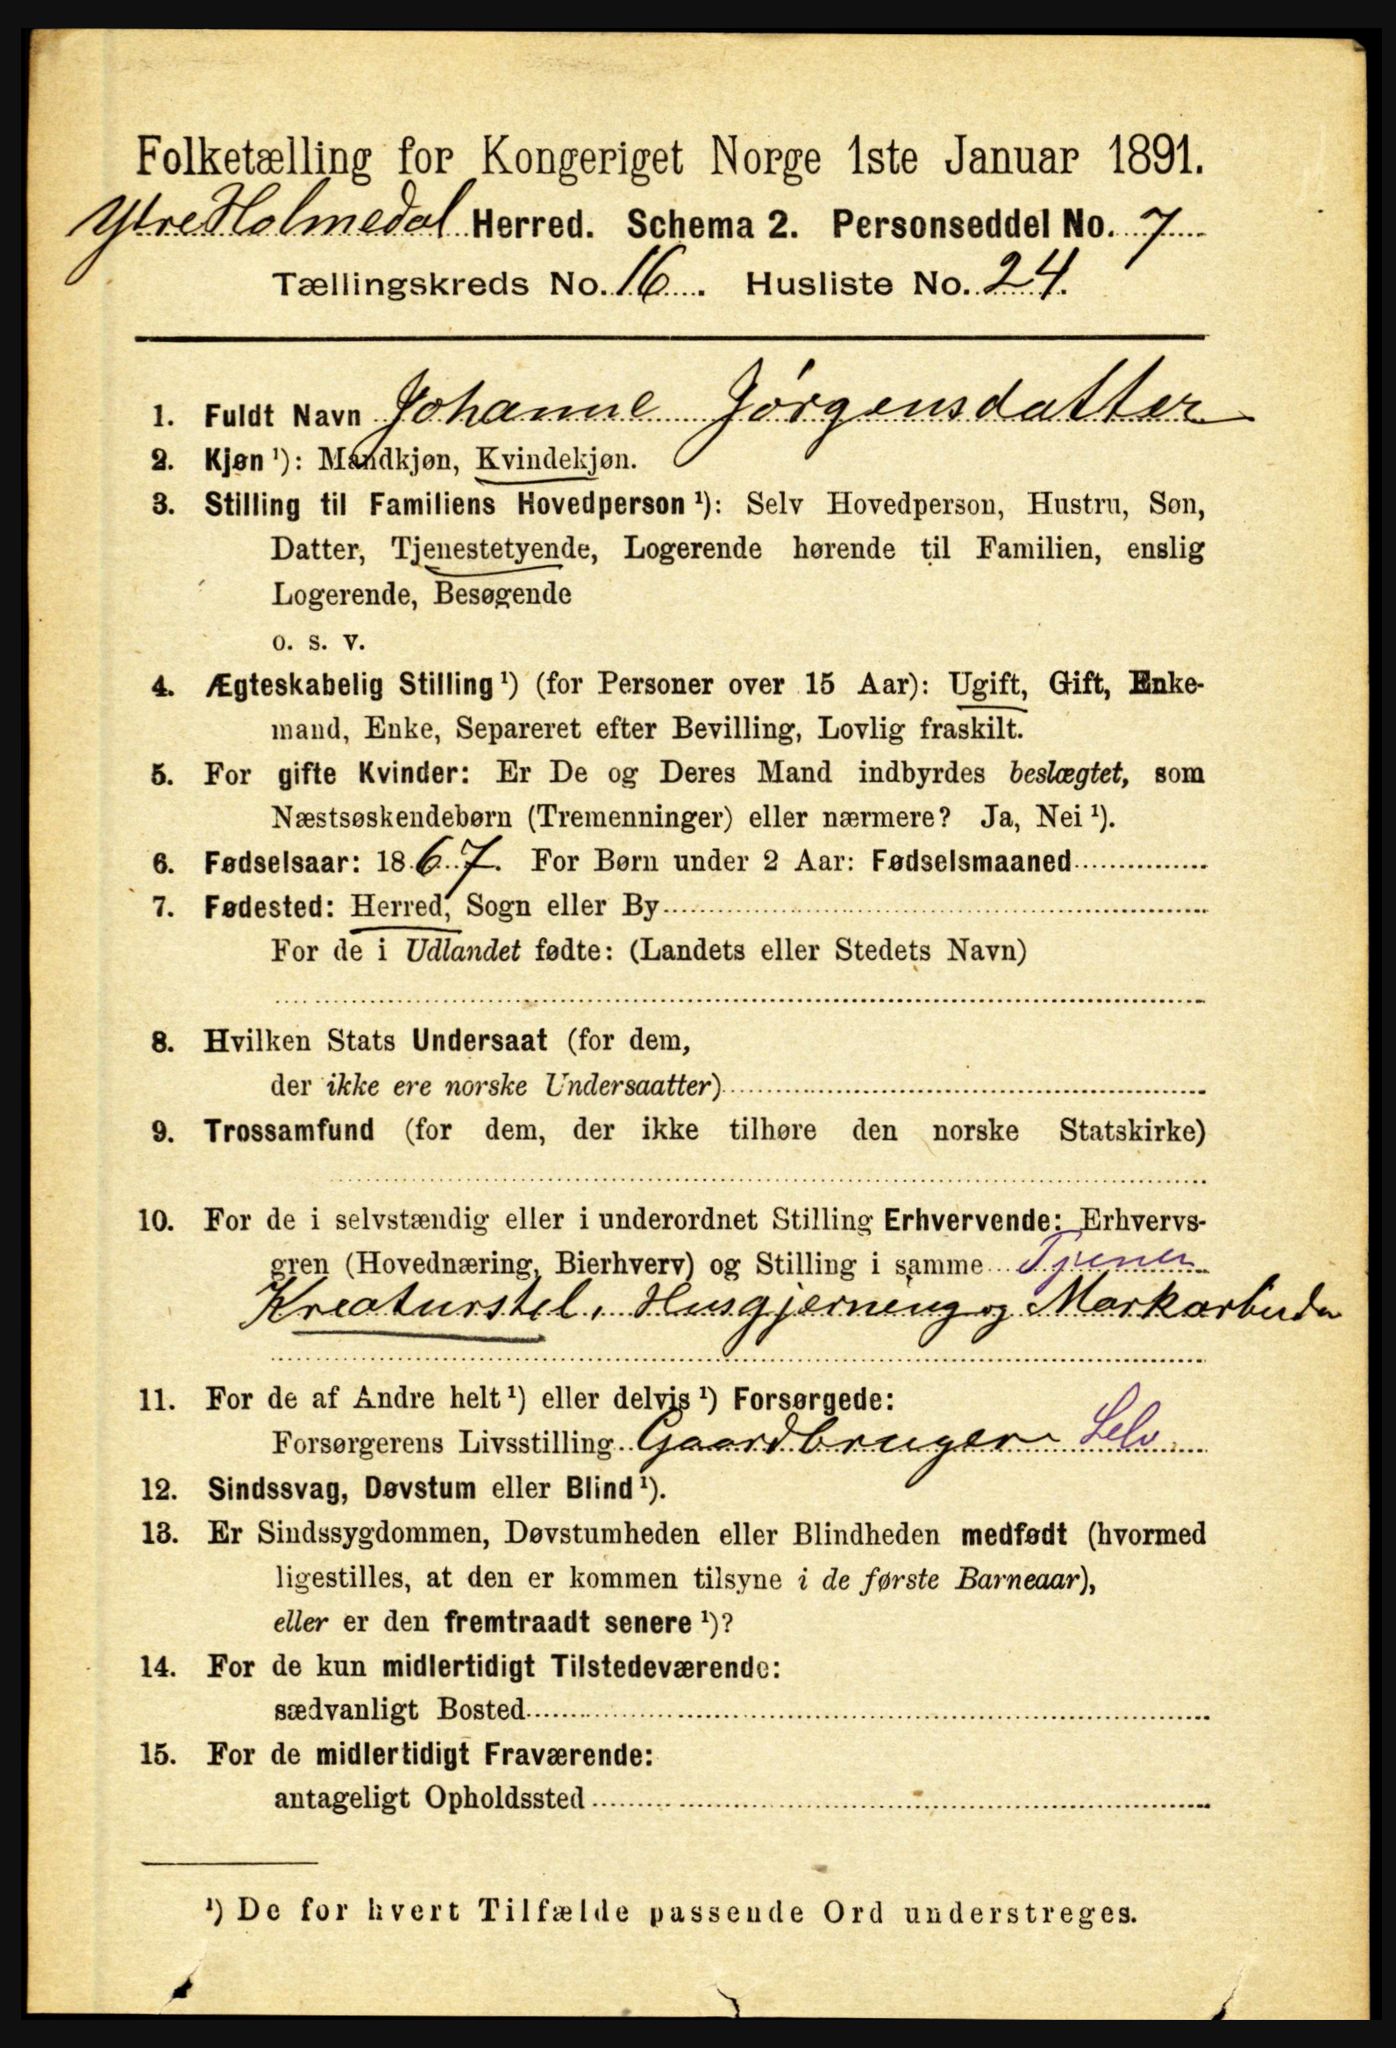 Folketælling for Kongeriget Norge 1ste Januar 1891.
Ytre Holmedal Herred. Schema 2. Personseddel No. 7
Tællingskreds No. 16. Husliste No. 24.
1. Fuldt Navn Johanne Jørgensdatter
2. Kjøn ¹): Mandkjøn, Kvindekjøn.
3. Stilling til Familiens Hovedperson ¹): Selv Hovedperson, Hustru, Søn,
Datter, Tjenestetyende, Logerende hørende til Familien, enslig
Logerende, Besøgende
o. s. v.
4. Ægteskabelig Stilling ¹) (for Personer over 15 Aar): Ugift, Gift, Enke-
mand, Enke, Separeret efter Bevilling, Lovlig fraskilt.
5. For gifte Kvinder: Er De og Deres Mand indbyrdes beslægtet, som
Næstsøskendebørn (Tremenninger) eller nærmere? Ja, Nei ¹).
6. Fødselsaar: 1867. For Børn under 2 Aar: Fødselsmaaned
7. Fødested: Herred, Sogn eller By
For de i Udlandet fødte: (Landets eller Stedets Navn)
8. Hvilken Stats Undersaat (for dem,
der ikke ere norske Undersaatter)
9. Trossamfund (for dem, der ikke tilhøre den norske Statskirke)
10. For de i selvstændig eller i underordnet Stilling Erhvervende: Erhvervs-
gren (Hovednæring, Bierhverv) og Stilling i samme Tjener
Kreaturstel, Husgjerning og Markarbeide
11. For de af Andre helt ¹) eller delvis ¹) Forsørgede:
Forsørgerens Livsstilling Gaardbruger Selv
12. Sindssvag, Døvstum eller Blind ¹).
13. Er Sindssygdommen, Døvstumheden eller Blindheden medfødt (hvormed
ligestilles, at den er kommen tilsyne i de første Barneaar),
eller er den fremtraadt senere ¹)?
14. For de kun midlertidigt Tilstedeværende:
sædvanligt Bosted
15. For de midlertidigt Fraværende:
antageligt Opholdssted
¹) De for hvert Tilfælde passende Ord understreges.